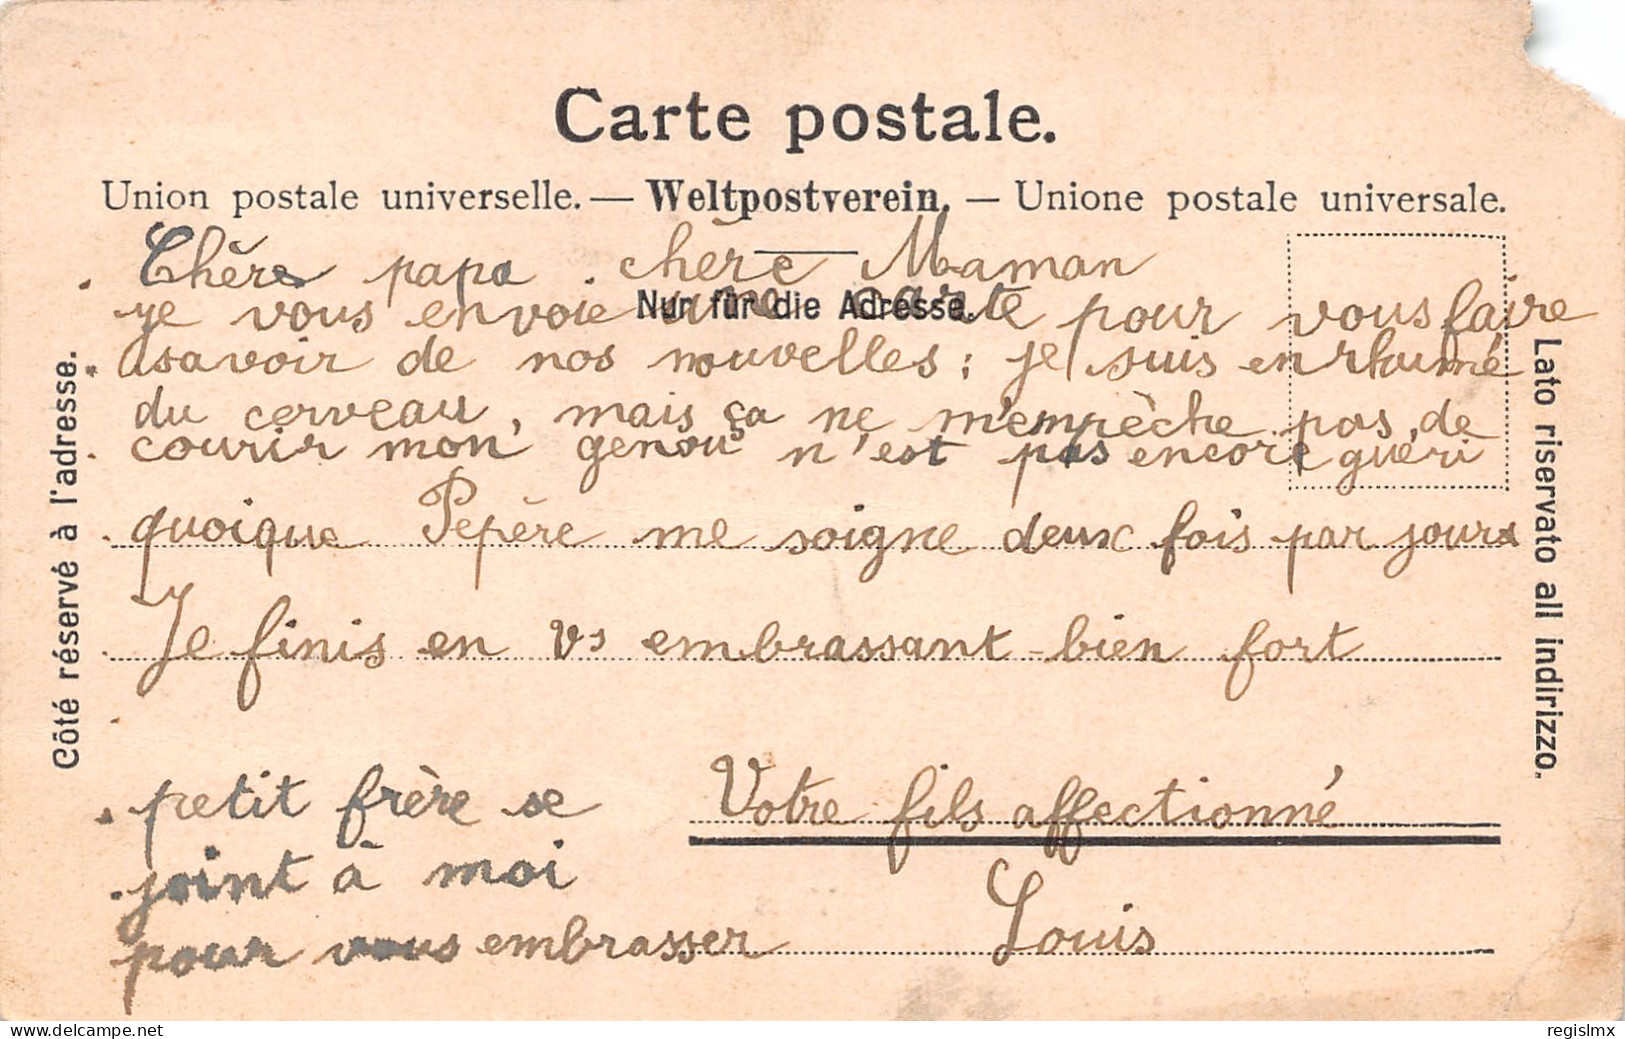 Carte postale.
Union postale universelle. — Weltpostverein. — Unione postale universale.
Nur für die Adresse.
Côté réservé à l'adresse.
Lato riservato all indirizzo.
Chère papa. chère Maman
je vous envoie une carte pour vous faire
savoir de nos nouvelles; je suis enrhumé
du cerveau, mais ça ne m'empèche pas de
courir mon genou n'est pas encore guéri
quoique Pépère me soigne deux fois par jours
Je finis en vs embrassant bien fort
petit frère se
joint à moi
pour vous embrasser
Votre fils affectionné
Louis
www.delcampe.net
regislmx